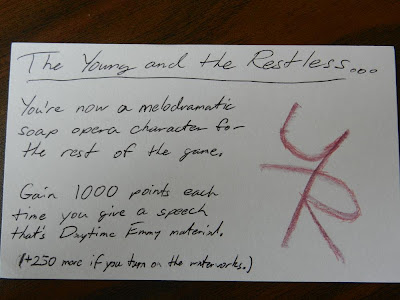 The Young and the Restless...
You're now a melodramatic
soap opera character for
the rest of the game.
Gain 1000 points each
time you give a speech
that's Daytime Emmy material.
(+250 more if you turn on the waterworks.)
YR